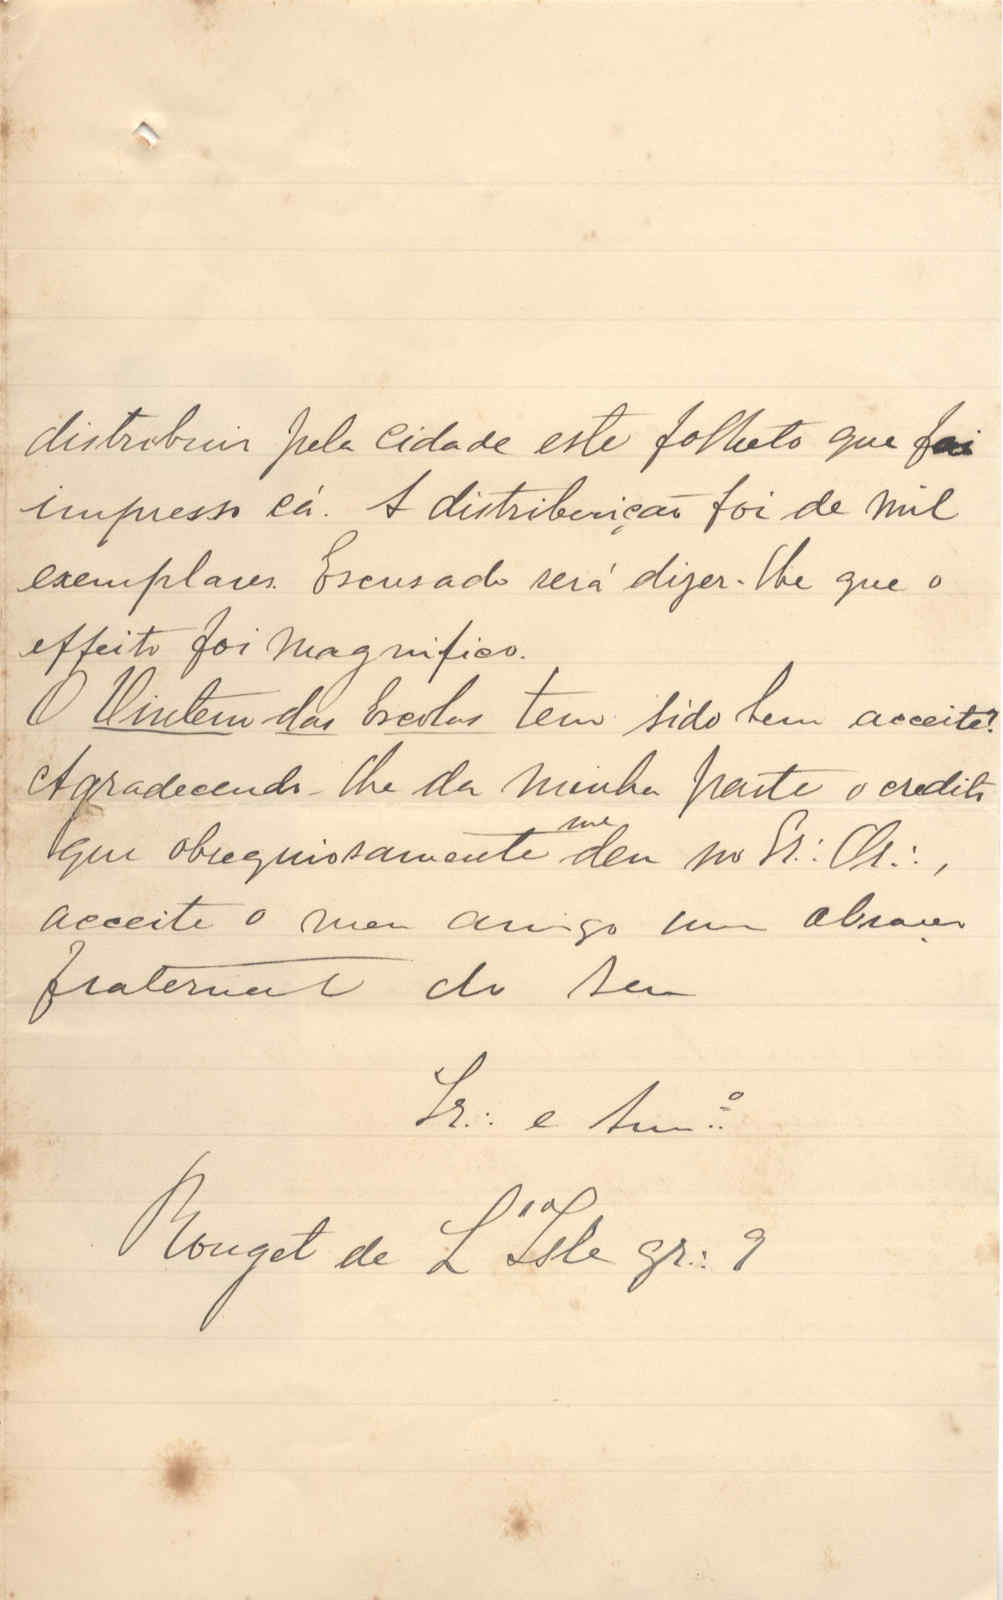 distrobuir pela cidade este folheto que foi
impresso cá. A distribuição foi de mil
exemplares. Escusado será dizer-lhe que o
effeito foi magnifico.
O Vintem das Escolas tem sido bem acceite?
Agradecendo-lhe da minha parte o credito
que obsequiosamente me deu no Gr∴ Or∴,
acceite o meu amigo um abraço
fraternal do seu
Ir∴ e Am∴º
Rouget de L'Isle gr∴ 9